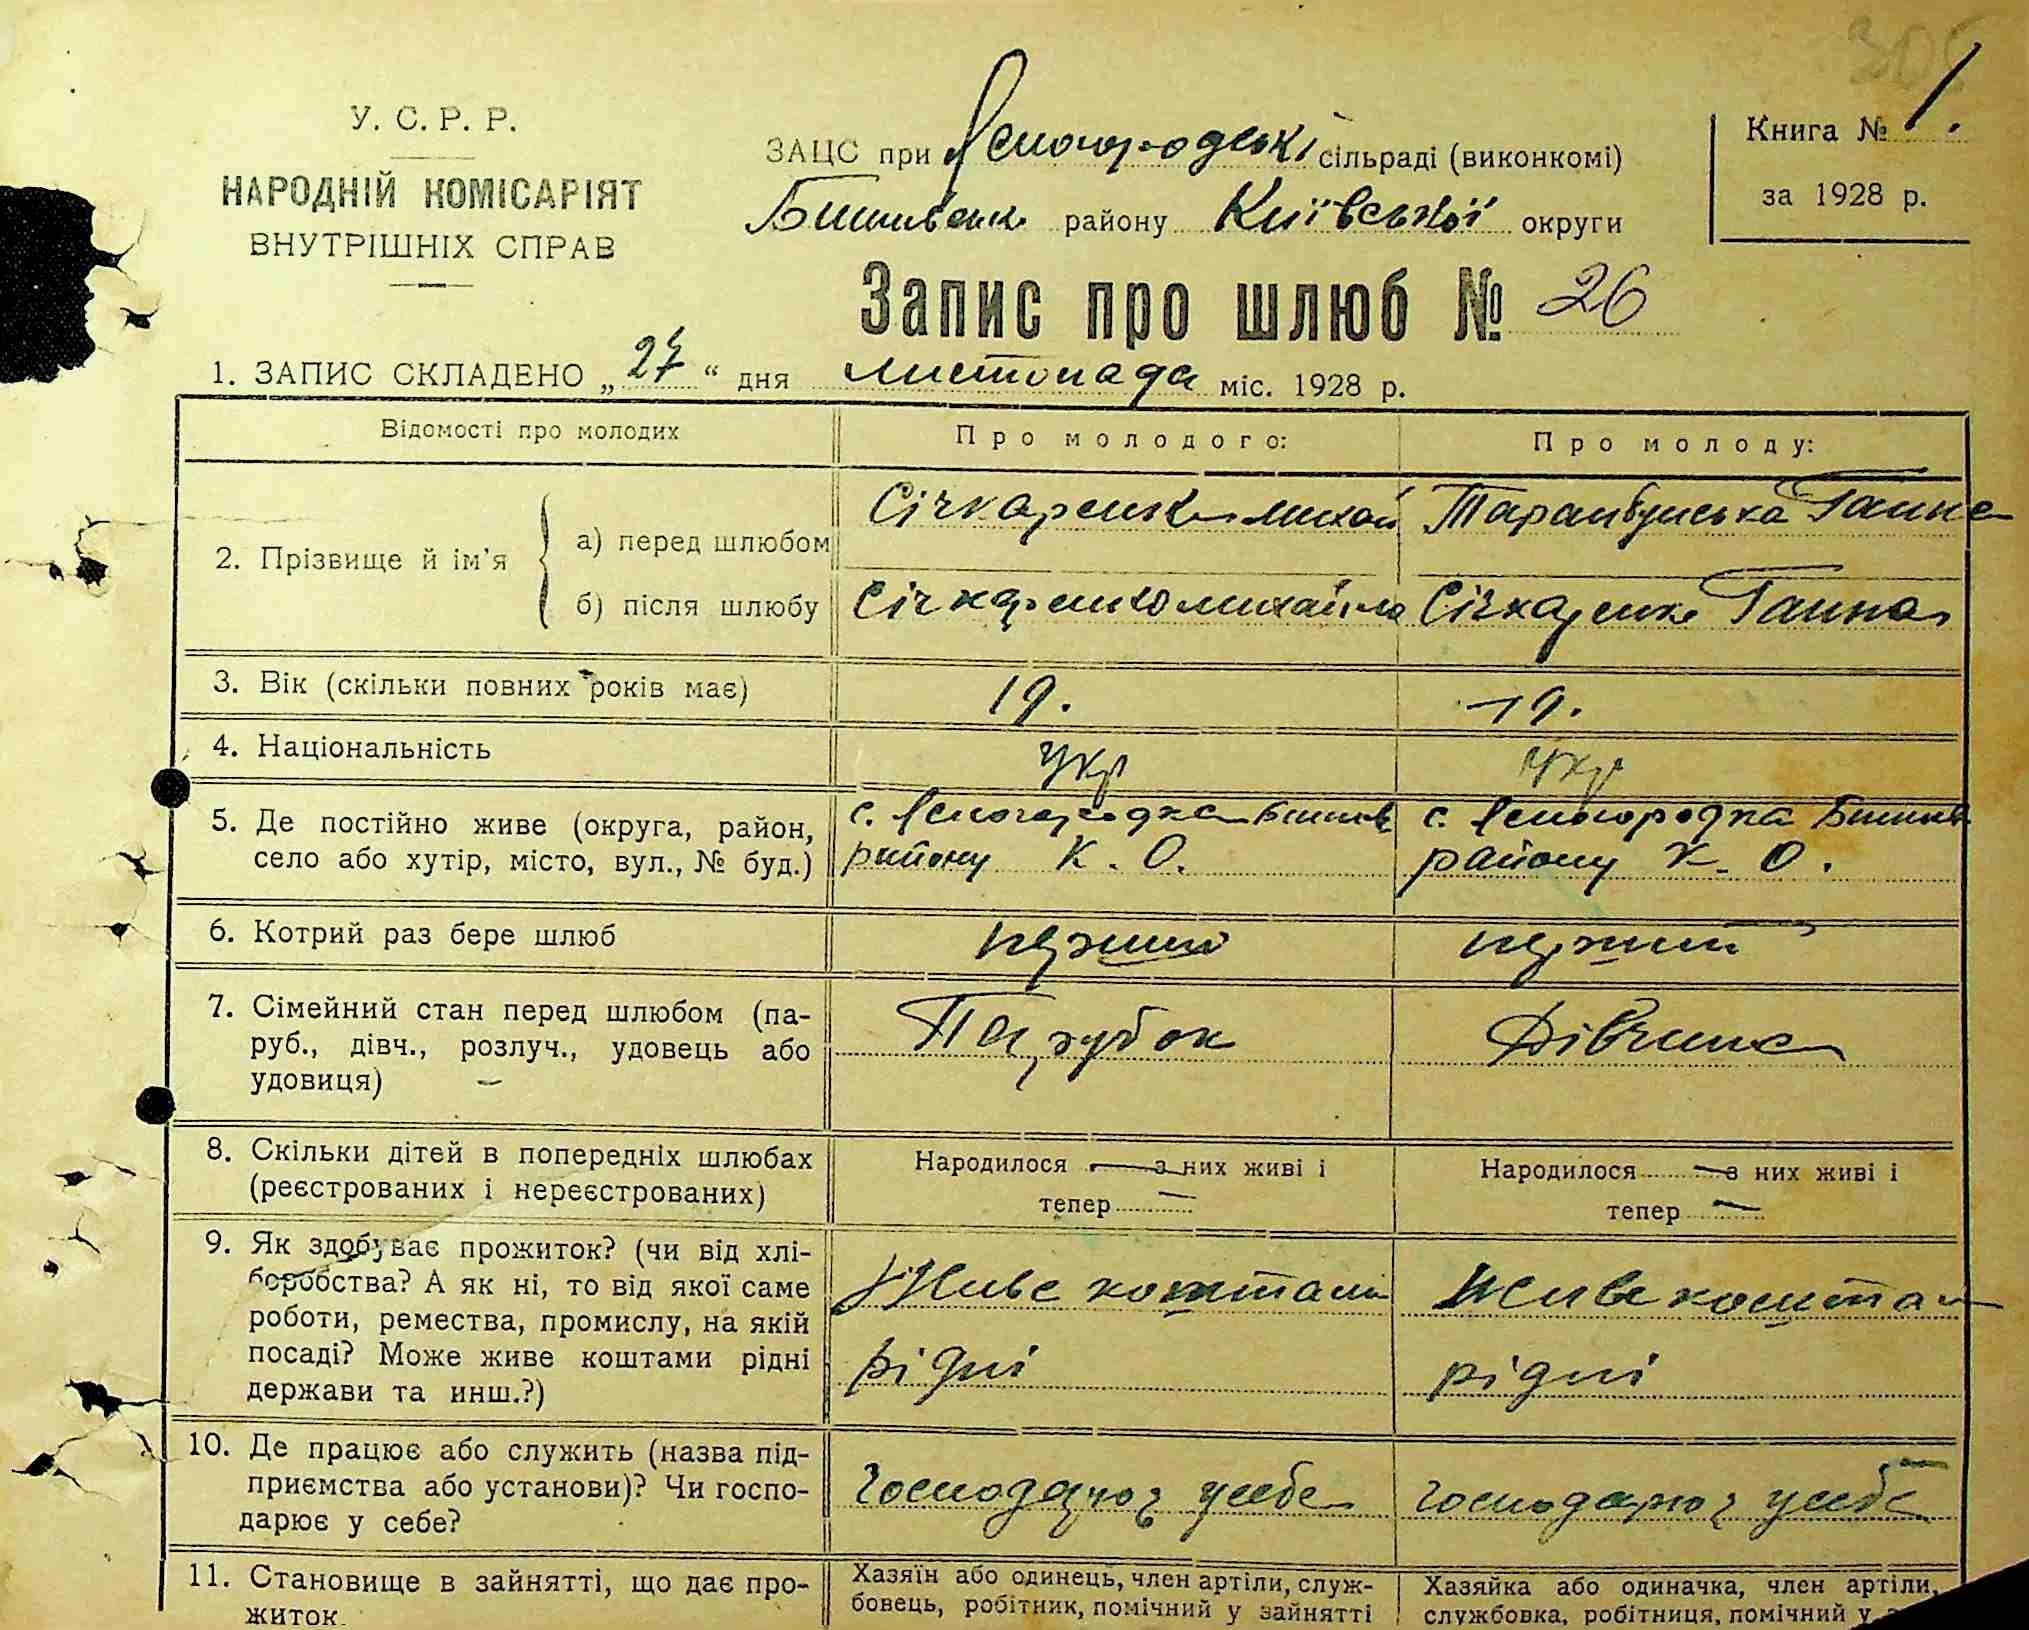 У. С. Р. Р.
НАРОДНІЙ КОМІСАРІЯТ
ВНУТРІШНІХ СПРАВ
ЗАЦС при Ясногородські сільраді (виконкомі)
Бишівськ району Київської округи
Книга № 1.
за 1928 р.
Запис про шлюб № 26
1. ЗАПИС СКЛАДЕНО „27“ дня листопада міс. 1928 р.
Відомості про молодих
Про молодого:
Про молоду:
2. Прізвище й ім'я
а) перед шлюбом
Січкаренко Михай
Таранбунська Ганна
б) після шлюбу
Січкаренко Михайло
Січкаренко Ганна
3. Вік (скільки повних років має)
19.
19.
4. Національність
Укр
Укр
5. Де постійно живе (округа, район,
село або хутір, місто, вул., № буд.)
с. Ясногородка Бишів
району К. О.
с. Ясногородка Бишів
району К. О.
6. Котрий раз бере шлюб
перший
перший
7. Сімейний стан перед шлюбом (па-
руб., дівч., розлуч., удовець або
удовиця)
Парубок
Дівчина
8. Скільки дітей в попередніх шлюбах
(реєстрованих і нереєстрованих)
Народилося — з них живі і
тепер —
Народилося — з них живі і
тепер —
9. Як здобуває прожиток? (чи від хлі-
боробства? А як ні, то від якої саме
роботи, ремества, промислу, на якій
посаді? Може живе коштами рідні
держави та инш.?)
Живе коштами
рідні
Живе коштами
рідні
10. Де працює або служить (назва під-
приємства або установи)? Чи госпо-
дарює у себе?
Господарює у себе
Господарює у себе
11. Становище в зайнятті, що дає про-
житок.
Хазяїн або одинець, член артіли, служ-
бовець, робітник, помічний у зайнятті
Хазяйка або одиначка, член артіли,
службовка, робітниця, помічний у